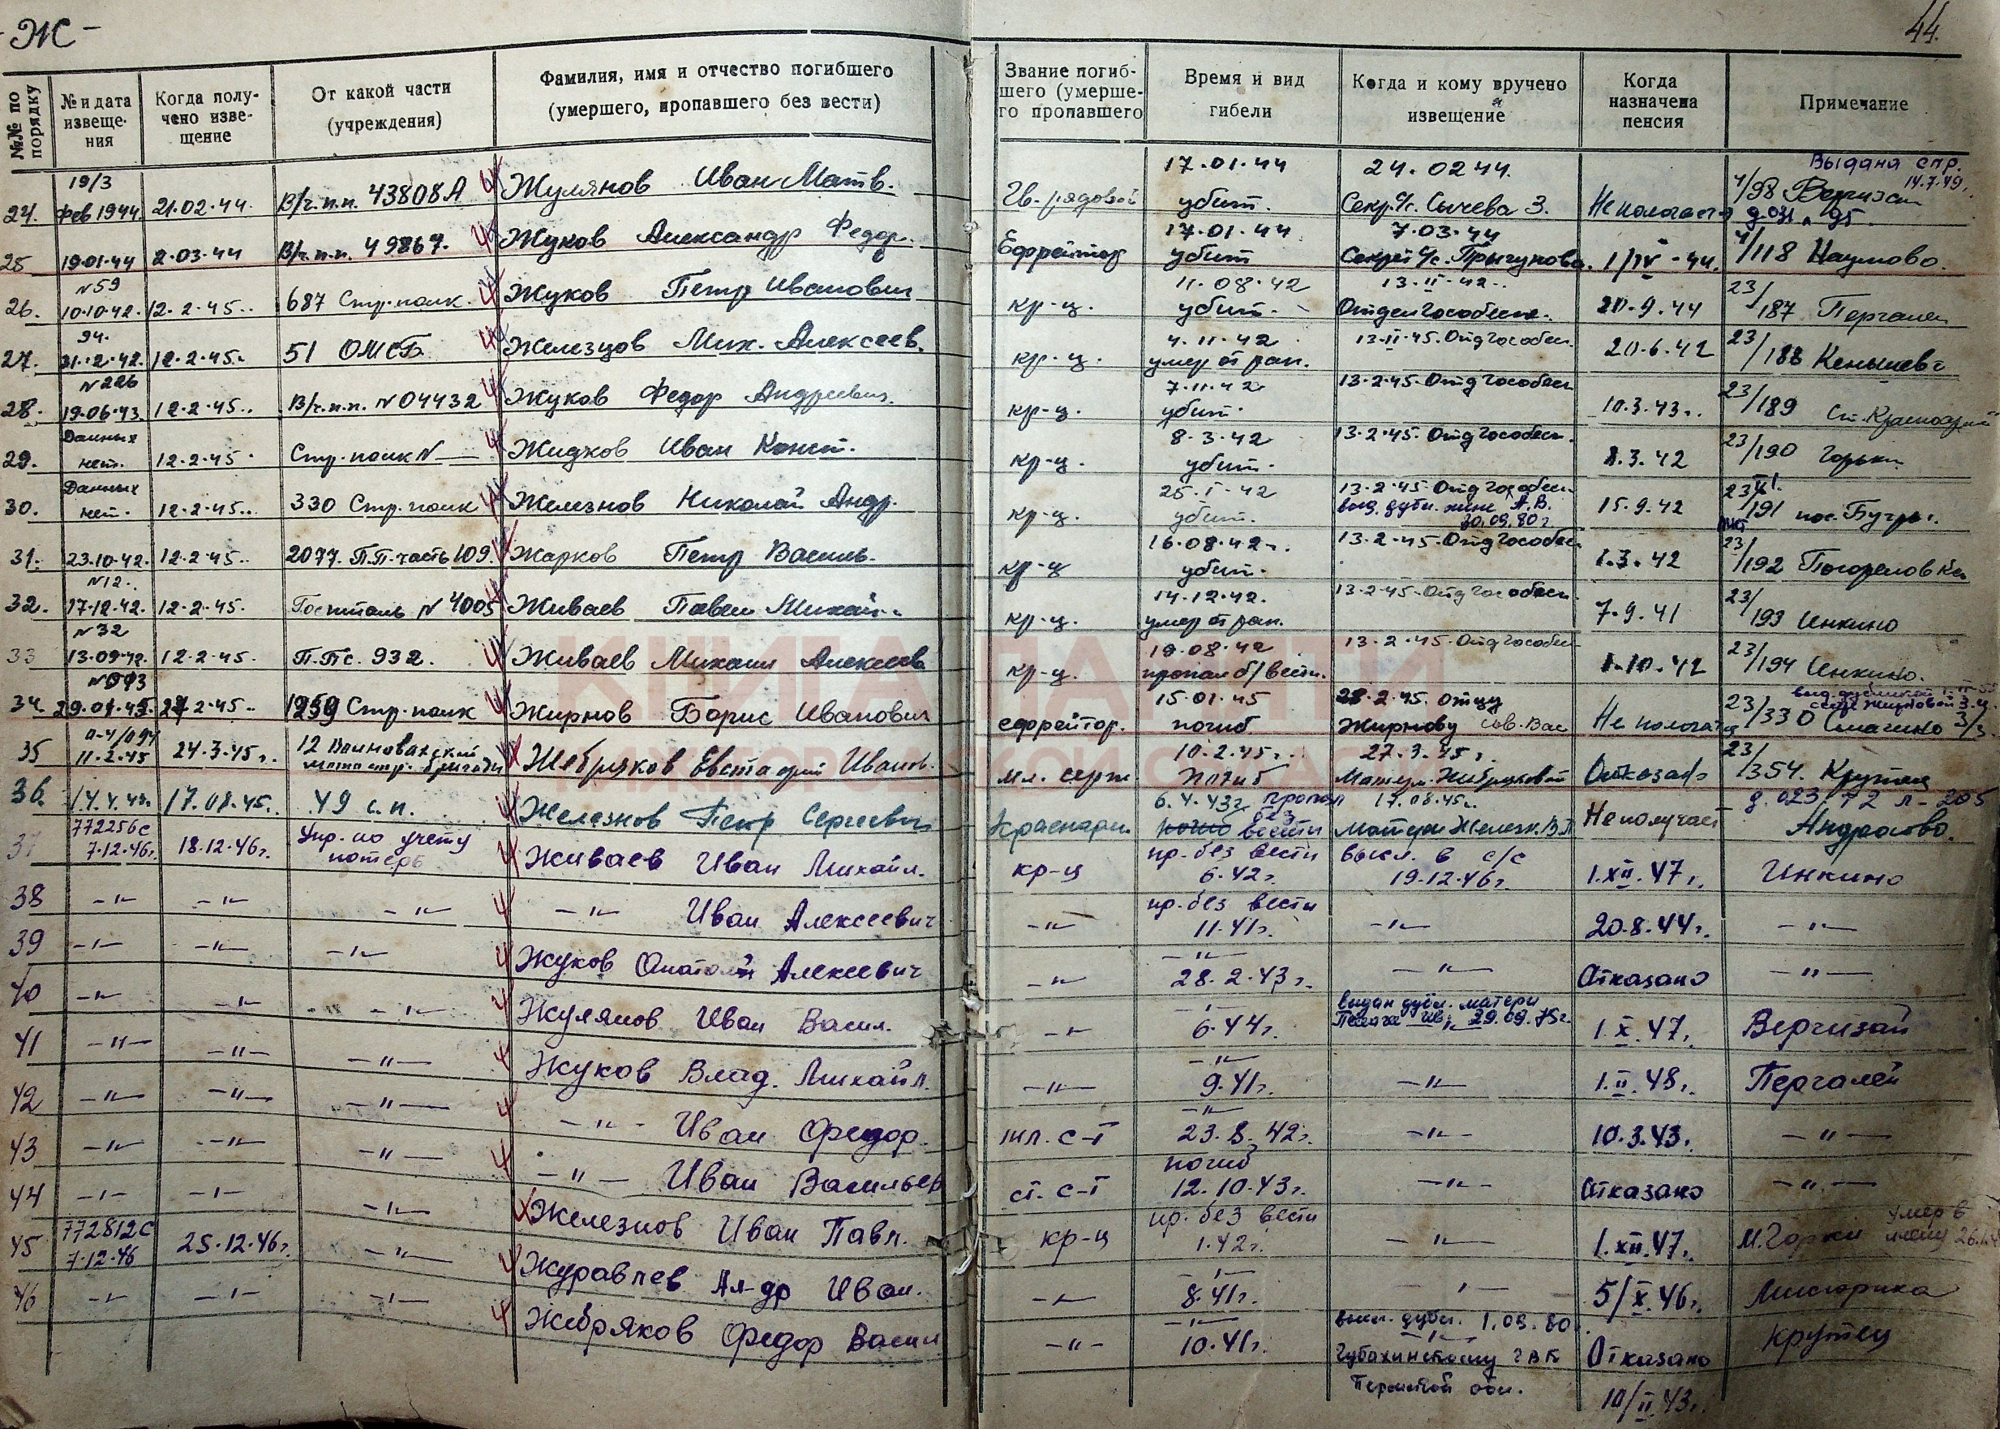 - Ж -
44.
№№ по порядку
№ и дата извеще-ния
Когда полу-чено изве-щение
От какой части (учреждения)
Фамилия, имя и отчество погибшего (умершего, пропавшего без вести)
Звание погиб-шего (умерше-го пропавшего
Время и вид гибели
Когда и кому вручено извещение
Когда назначена пенсия
Примечание
Выдана спр. 14.7.49г.
24. 19/3 фев 1944 21.02.44. В/ч.п.п. 43808А Жулянов Иван Матв. Гв. рядовой 17.01.44 убит. 24.02.44. Секр. с/с. Сычева З. Не пологает 4/98
25 19.01.44 2.03.44 В/ч.п.п. 49867. Жуков Александр Федор. Ефрейтор 17.01.44 убит 7.03.44 Секрет с/с. Прыгунова. 1/IV-44. 4/118 Наумово.
26. №59 10.10.42. 12.2.45.. 687 Стр. полк. Жуков Петр Иванович кр-ц. 11.08.42 убит. 20.9.44 23/187 Пергалеи
27. 94. 31.12.42. 12.2.45. 51 ОМСБ Железцов Мих. Алексеев. кр-ц. 4.11.42 умер от ран. 20.6.42 23/188
28. №226 19.06.43. 12.2.45.. В/ч.п.п. №04432 Жуков Федор Андреевич. кр-ц. 7.11.42 убит. 13.2.45. Отд Гособесп 10.3.43.. 23/189 Ст.
29. Данных нет. 12.2.45. Стр. полк № — Жидков Иван Конст. кр-ц. 8.3.42 убит. 13.2.45. Отд Гособесп. 8.3.42 23/190 Горьки
30. Данных нет. 12.2.45.. 330 Стр. полк Железнов Николай Андр. кр-ц. 25.I.42 убит. 13.2.45. Отд Гособесп выд. дубл. жене А.В. 30.09.80г 15.9.42 23/191 пос. Бугры.
31. 23.10.42. 12.2.45.. 2077. П.П. часть 109 Жарков Петр Василь. кр-ц 16.08.42г. убит. 13.2.45. Отд Гособесп 1.3.42 23/192
32. №12. 17.12.42. 12.2.45. Госпиталь №4005 Живаев Павел Михайл. кр-ц. 14.12.42. умер от ран. 13.2.45. Отд Гособесп. 7.9.41 23/193 Инкино
33 №32 13.09.42. 12.2.45. П.П.С. 932. Живаев Михаил Алексеев кр-ц. 19.08.42 пропал б/вести. 13.2.45. Отд Гособесп 1.10.42 23/194 Инкино.
34. 29.01.45. 27.2.45.. 1259 Стр. полк Жирнов Борис Иванович ефрейтор. 15.01.45 погиб 28.2.45. отцу Жирнову Не пологает 23/330
35 11.2.45 24.3.45г. 12 Жебряков Евстафий Иванов. мл. серж 10.2.45г. погиб 27.3.45г. Матери. Жебряковой Отказано 23/354. Крутец
36. 14.4.43. 17.08.45. 49 с.п. Железнов Петр Сергеевич Красноарм. 6.4.43г. пропал без вести 17.08.45г. Матери Железн. В.П Не получает д. 023, т 2 л-205 Андросово.
37 772256с 7.12.46г. 18.12.46г. Упр. по учету потерь Живаев Иван Михайл. кр-ц пр. без вести 6.42г. высл. в с/с 19.12.46г. 1.XII.47г. Инкино
38 -"- -"- -"- -"- Иван Алексеевич -"- пр. без вести 11.41г. -"- 20.8.44г. -"-
39 -"- -"- -"- Жуков Анатолий Алексеевич -"- -"- 28.2.43г. -"- Отказано -"-
40 -"- -"- -"- Жулянов Иван Васил. -"- -"- 6.44г. выдан дубл. матери 29.09.75г. 1.X.47г. Вергизай
41 -"- -"- -"- Жуков Влад. Михайл. -"- -"- 9.41г. -"- 1.II.48г. Пергалей
42 -"- -"- -"- -"- Иван Федор. мл. с-т -"- 23.8.42г. -"- 10.3.43г. -"-
43 -"- -"- -"- -"- Иван Васильев ст. с-т погиб 12.10.43г. -"- Отказано -"-
44 -"- -"- -"- Железнов Иван Павл. кр-ц пр. без вести 1.42г. -"- 1.XII.47г. М. Горки
45 772812с 7.12.46 25.12.46г. -"- Журавлев Ал-др Иван. -"- -"- 8.41г. -"- 5/X.46г.
46 -"- -"- -"- Жебряков Федор Васил -"- 10.41г. высл. дубл. 1.09.80г. Губахинскому ГВК Пермской обл. Отказано 10/II.43г. Крутец
КНИГА ПАМЯТИ
НИЖЕГОРОДСКОЙ ОБЛАСТИ